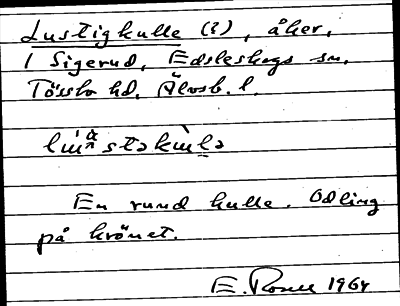 Lustigkulle (?), åker,
I Sigerud, Edsleskogs sn.
Tössbo hd. Älvsb. l.
En rund kulle. Odling
på krönet.
E. Rosell 1964